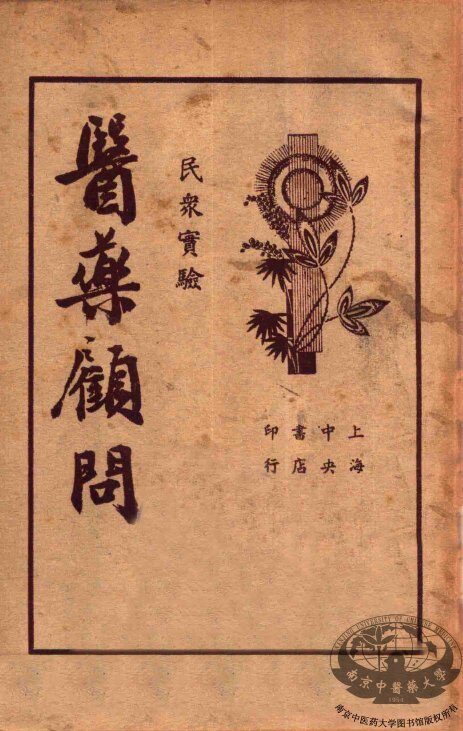 民衆實驗
醫藥顧問
上海
中央
書店
印行
NANJING UNIVERSITY OF CHINESE MEDICINE
南京中醫藥大學
1954
南京中医药大学图书馆版权所有